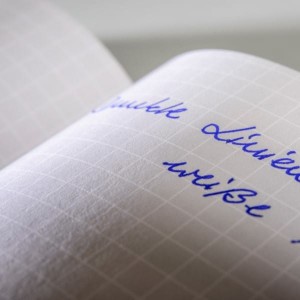 Dunkle Linien
weiße